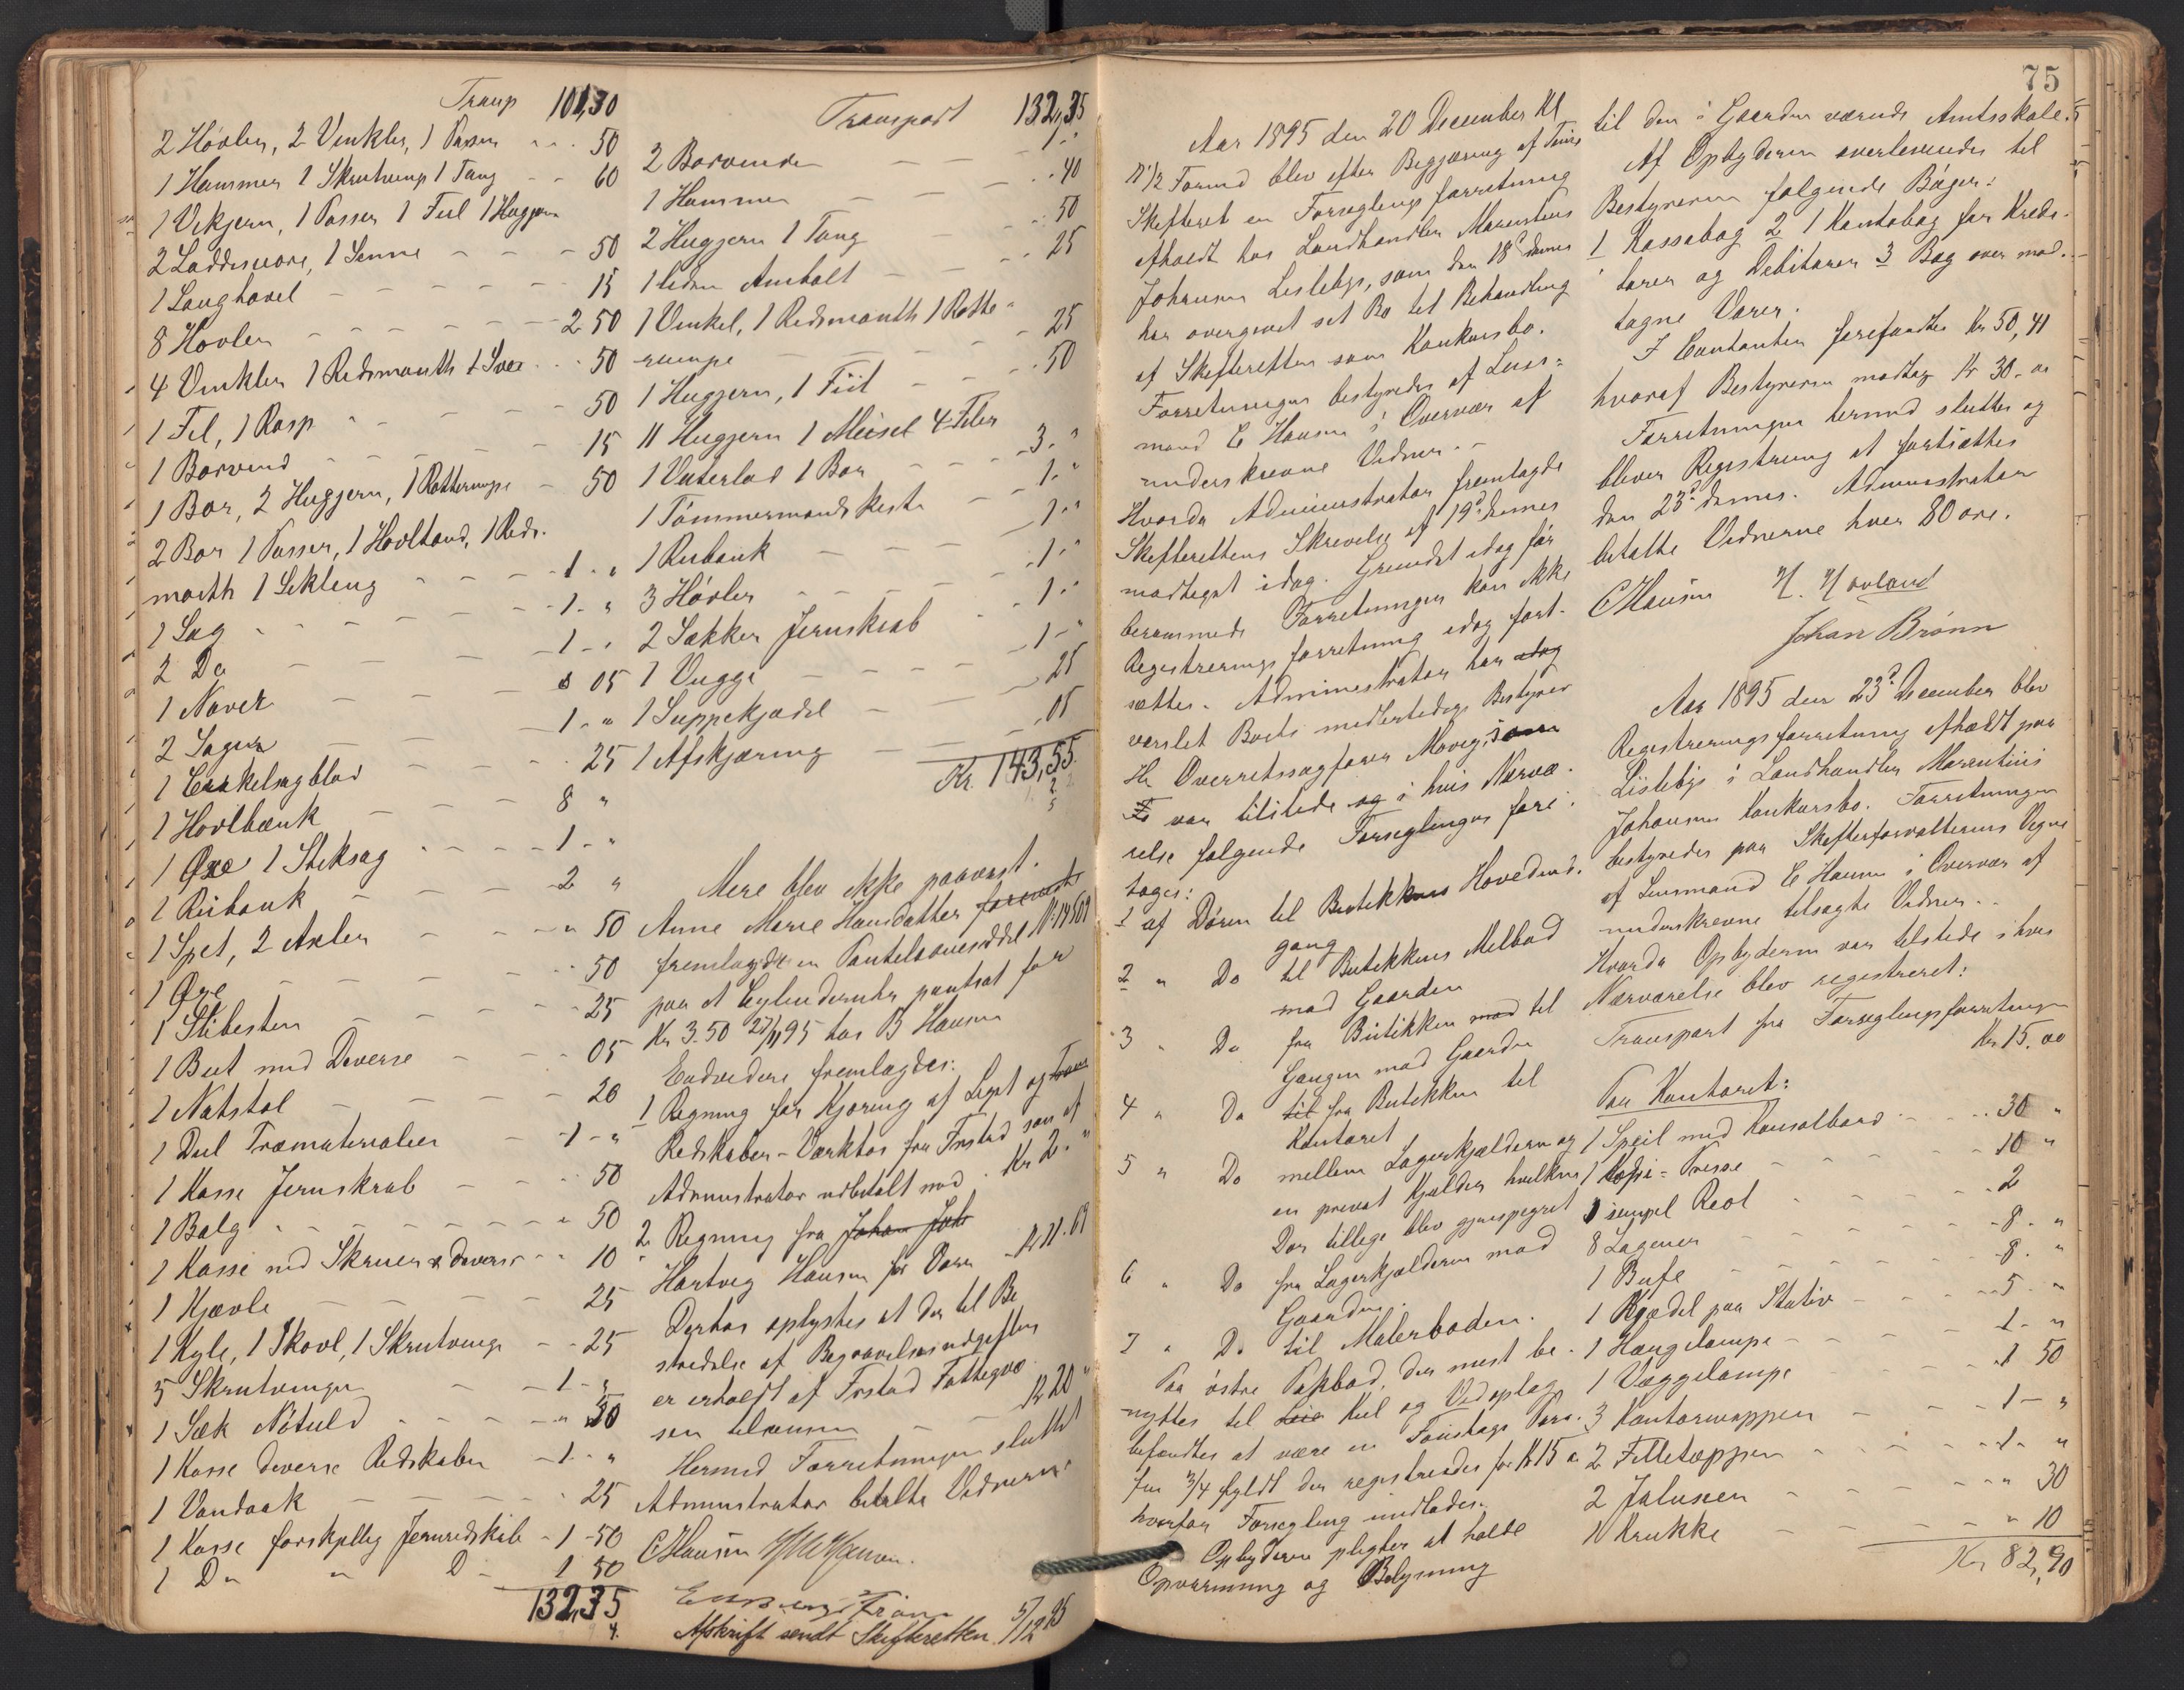 Transp 101,30
2 Høvler, 2 Vinkler, 1 Passer 50
1 Hammer 1 Skrutvinge 1 Tang 60
1 Vekjern, 1 Passer 1 Fiil 1 Hugjern
2 Loddeskeer, 1 50
1 Langhøvel 15
8 Høvler 2 50
4 Vinkler 1 Redsmaath 1 Svee 50
1 Fil, 1 Rasp 50
1 Borvend 15
1 Bor, 2 Huggjern, 1 Rotterumpe 50
2 Bor 1 Passer, 1 Høvltand, 1 Reds-
maath 1 Sikling 1 "
1 Sag 1 "
2 Do 1 "
1 Naver 05
2 Sager 1 "
1 Cirkelsagblad 25
1 Høvlbænk 8 "
1 Øxe 1 Stiksag 1 "
1 Rubank 2 "
1 Spet, 2 Axler 50
1 Øxe 50
1 Slibesten 25
1 But med Diverse 05
1 Natstol 20
1 Deel Træmaterialier 1 "
1 Kasse Jernskrab 50
1 Balg 50
1 Kasse med Skruer & diverse 10
1 Kjævle 25
1 Kyle, 1 Skovl, 1 Skrutvinge 25
5 Skrutvinger 1 "
1 Sæk Nøtuld 50
1 Kasse diverse Redskaber 1 "
1 Vandaak 25
1 Kasse forskjellig Jernredskab 1 50
1 Do " Do 1 50
132,35
Transport 132,35
2 Borvinder 1 "
1 Hammer 40
2 Huggjern 1 Tang 50
1 liden Ambolt 25
1 Vinkel, 1 Redsmaath 1 Rotte-
rumpe 25
1 Huggjern, 1 Fiil 50
11 Huggjern 1 Meisel 4 Filer 3 "
1 Vaterlod 1 Bor 1 "
1 Tømmermandskiste 1 "
1 Rubank 1 "
3 Høvler 1 "
2 Sækker Jernskrab 1 "
1 Vugge 25
1 Suppekjedel 05
1 Afskjæring
Kr. 143,55
Mere blev ikke paavist.
Anne Marie Hansdatter
fremlagde en Pantelaanseddel No 14509
paa et Cylinderuhr pantsat for
Kr 3.50 27/11 95 hos B Hansen
Endvidere fremlagdes:
1 Regning for Kjøring af Liget og
Redskaber - Værktøi fra Frstad som af
Administrator udbetalt med Kr 2 "
2 Regning fra Johan Joh
Hartvig Hansen for Varer Kr 11.69
Derhos oplystes at der til Be
stridelse af Begravelsesudgifter
er erholdt af Frstad Fattigvæ
sen tilsammen Kr 20 "
Hermed Forretningen sluttet
Administrator betalte Vidnerne.
C Hansen
Afskrift sendt Skifteretten 5/12 95
75
Aar 1895 den 20 December Kl
11 1/2 Formd blev efter Begjæring af Tune
Skifteret en Forseglingsforretning
afholdt hos Landhandler Marentius
Johansen Lisleby, som den 18d dennes
har overgivet sit Bo til Behandling
af Skifteretten som Konkursbo.
Forretningen bestyredes af Lens-
mand C Hansen i Overvær af
underskrevne Vidner.
Hvorda Administrator fremlagde
Skifterettens Skrivelse af 19d dennes
modtaget idag. Grundet idag før
berammede Forretninger kan ikke
Registreringsforretning idag fort-
sættes. Administrator har idag
varslet Boets midlertidige Bestyrer
Hr Overretssagfører Movig som
var tilstede og i hvis Nærvæ-
relse følgende Forseglinger fore-
toges:
1 af Døren til Butikkens Hovedind-
gang
2 " Do til Butikkens Melbod
mod Gaarden
3 " Do fra Butikken mod til
Gangen mod Gaarden
4 " Do til fra Butikken til
Kontoret
5 " Do mellem Lagerkjælderen og
en privat Kjælder hvilken
Dør tillige blev gjenspigret
6 " Do fra Lagerkjælderen mod
Gaarden.
7 " Do til Malerboden.
Paa østre Pakbod, der mest be-
nyttes til Leie Kul og Vedoplag
befandtes at være en Tønstags
for 3/4 fyldt der registreredes for Kr 15 "
hvorfor Forsegling undlades.
Opbyderen pligter at holde
Opvarmning og Belysning
til den i Gaarden værende Amtsskole.
Af Opbyderen overleveredes til
Bestyreren følgende Bøger:
1 Kassabog 2 1 Kontobog for Kredi-
torer og Debitorer 3 Bog over mod-
tagne Varer.
I Contanter forefandtes Kr 50,41
hvoraf Bestyreren modtog Kr 30.00
Forretningen hermed sluttes og
bliver Registrering at fortsættes
den 23d dennes. Administrator
betalte Vidnerne hver 80 øre.
C Hansen H. Hovland
Johan Brønn
Aar 1895 den 23d December blev
Registreringsforretning afholdt paa
Lisleby i Landhandler Marentius
Johansens Konkursbo. Forretningen
bestyredes paa Skifteforvalterens Vegne
af Lensmand C Hansen i Overvær af
underskrevne tilsagte Vidner.
Hvorda Opbyderen var tilstede i hvis
Nærværelse blev registreret:
Transport fra Forseglingsforretningen
Kr 15.00
Paa Kontoret:
1 Speil med Konsolbord 30 "
1 Kopi-Presse 10 "
1 simpel Reol 2
8 Lagener 8 "
1 Bufe 8 "
1 Kjedel paa Stativ 5 "
1 Hængelampe 1 "
1 Væggelampe 1 50
3 Kontormapper 1 "
2 Filletæpper 1 "
2 Jalusier 30
1 Krukke 10
Kr 82,90